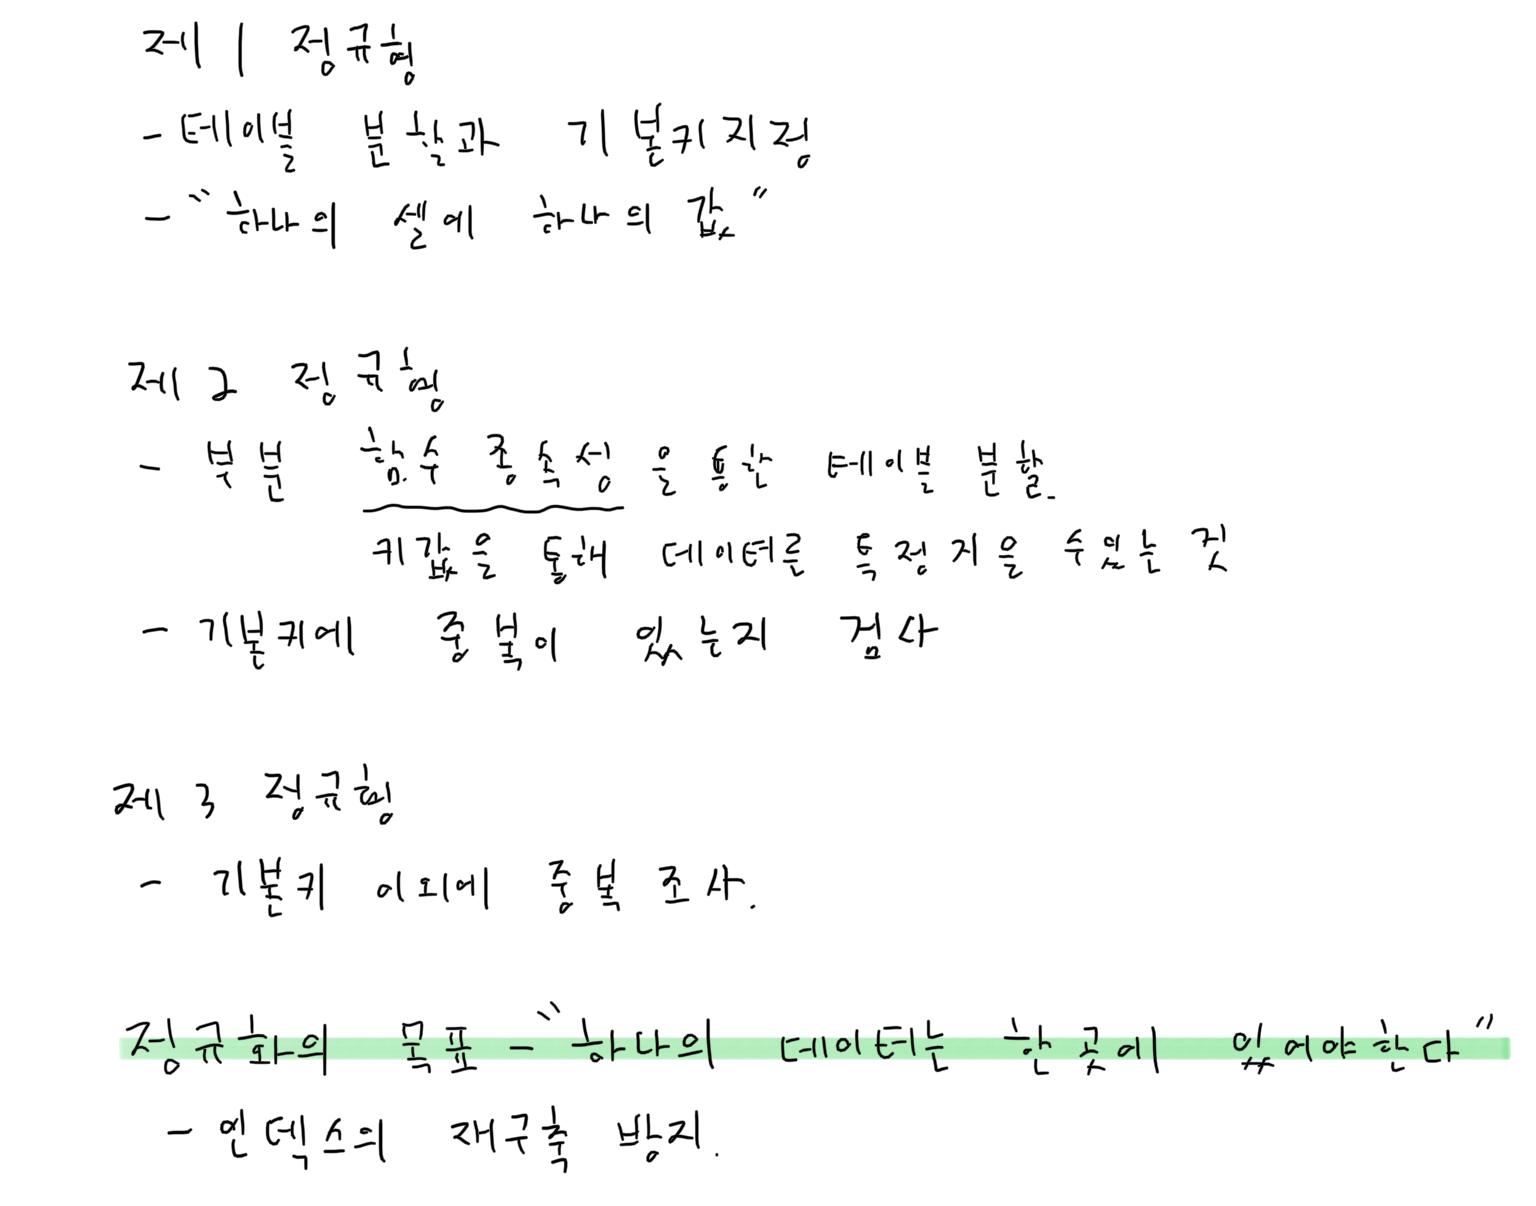 제 1 정규형
- 테이블 분할과 기본키지정
- "하나의 셀에 하나의 값"
제 2 정규형
- 부분 함수 종속성을 통한 테이블 분할.
키값을 통해 데이터를 특정지을 수 있는 것
- 기본키에 중복이 있는지 검사
제 3 정규형
- 기본키 이외에 중복 조사.
정규화의 목표 - "하나의 데이터는 한 곳에 있어야한다"
- 인덱스의 재구축 방지.